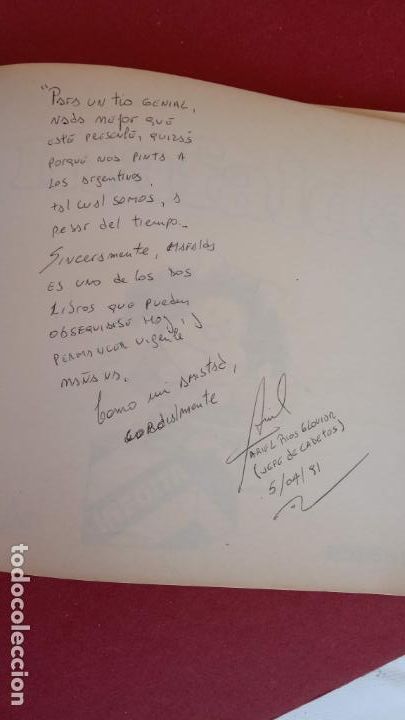 "PARA UN TÍO GENIAL,
NADA MEJOR QUE
ESTE PRESENTE, QUIZÁS
PORQUE NOS PINTA A
LOS ARGENTINOS.
TAL CUAL SOMOS, A
PESAR DEL TIEMPO...
SINCERAMENTE, MAFALDA
ES UNO DE LOS DOS
LIBROS QUE PUEDEN
OBSEQUIARSE HOY, Y
PERMANECER VIGENTE
MAÑANA.
Como mi AMISTAD,
CORDIALMENTE
Ariel
ARIEL RIOS
(JEFE DE CADETOS)
5/04/81
todocoleccion